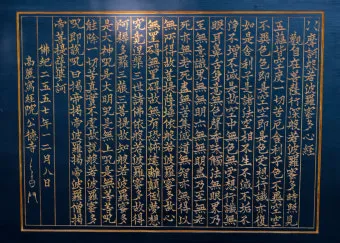 摩訶般若波羅蜜多心經
觀自在菩薩行深般若波羅蜜多時照見
五蘊皆空度一切苦厄舍利子色不異空空
不異色色卽是空空卽是色受想行識亦復
如是舍利子是諸法空相不生不滅不垢不
淨不增不減是故空中無色無受想行識無
眼耳鼻舌身意無色聲香味觸法無眼界乃
至無意識界無無明亦無無明盡乃至無老
死亦無老死盡無苦集滅道無智亦無得以
無所得故菩提薩埵依般若波羅蜜多故心
無罣礙無罣礙故無有恐怖遠離顚倒夢想
究竟涅槃三世諸佛依般若波羅蜜多故得
阿耨多羅三藐三菩提故知般若波羅蜜多
是大神呪是大明呪是無上呪是無等等呪
能除一切苦眞實不虛故說般若波羅蜜多
呪卽說呪曰揭諦揭諦波羅揭諦波羅僧揭
諦菩提娑婆訶
佛紀二五五七年二月八日
高麗寫經院